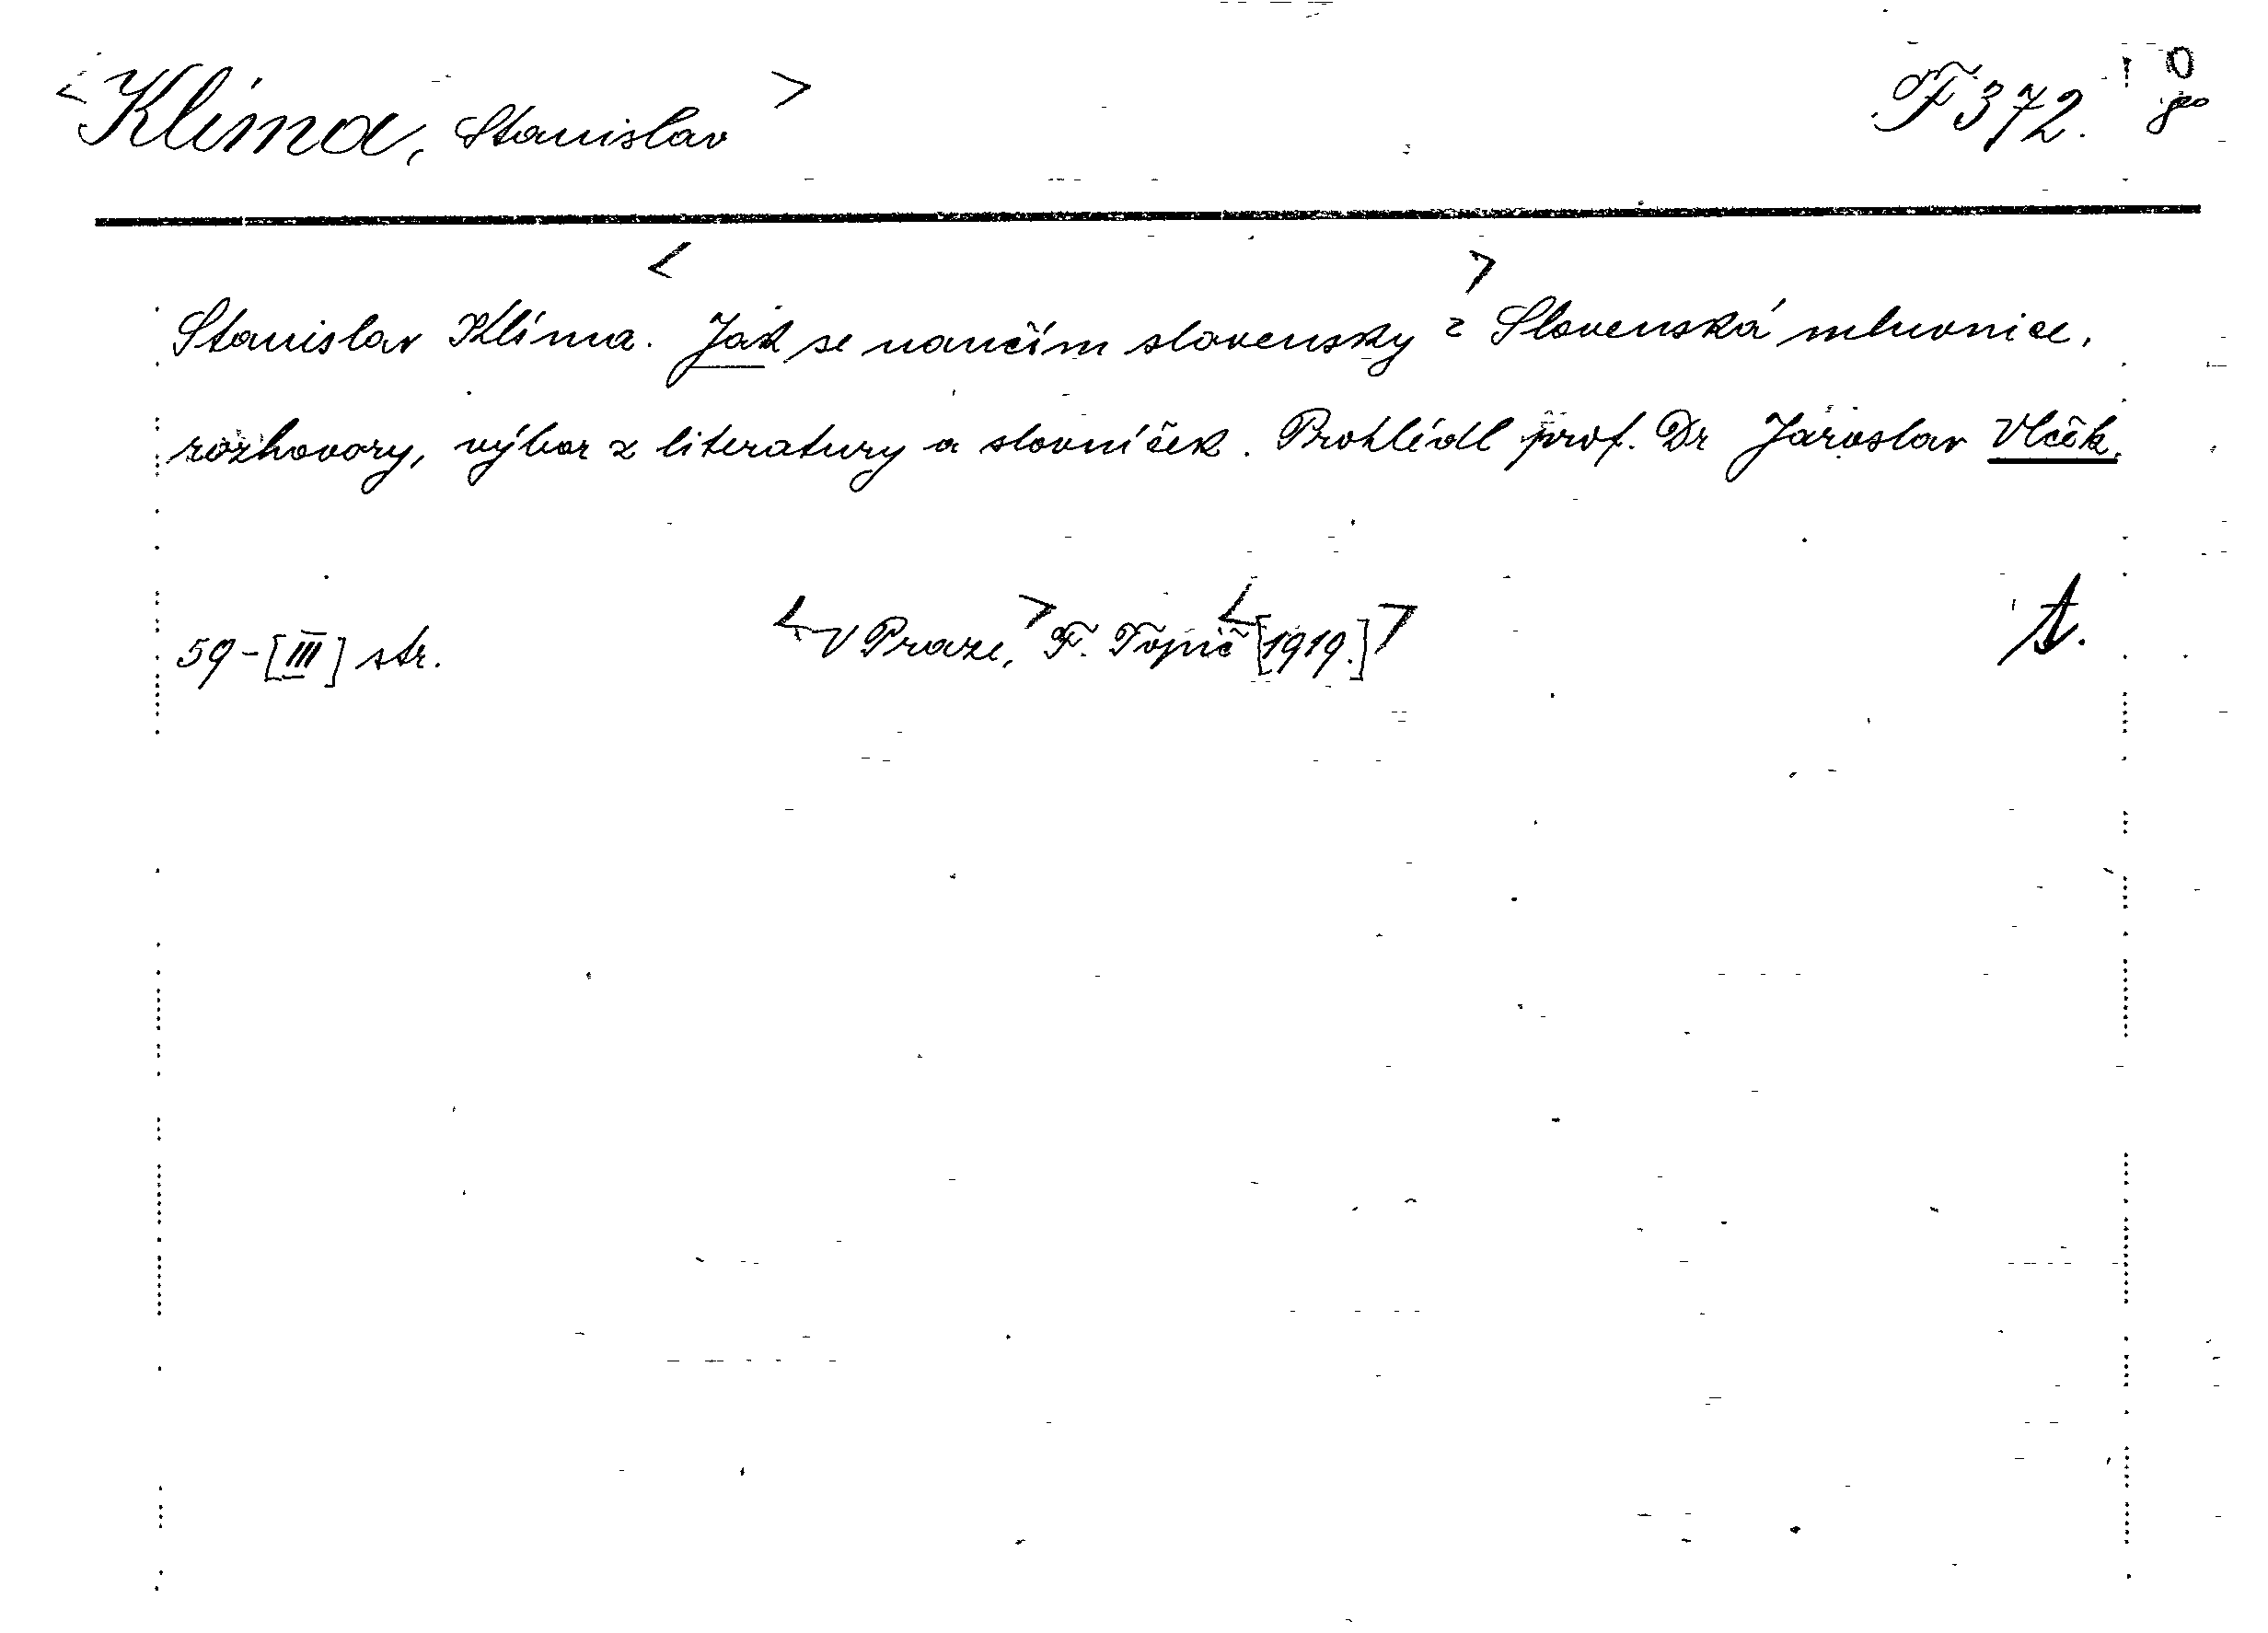 <Klíma, Stanislav> F 372. 8°
Stanislav Klíma. <Jak se naučím slovensky?> Slovenská mluvnice,
rozhovory, výbor z literatury a slovníček. Prohlédl prof. Dr Jaroslav Vlček.
59-[III] str. <V Praze,> F. Topič <[1919.]>